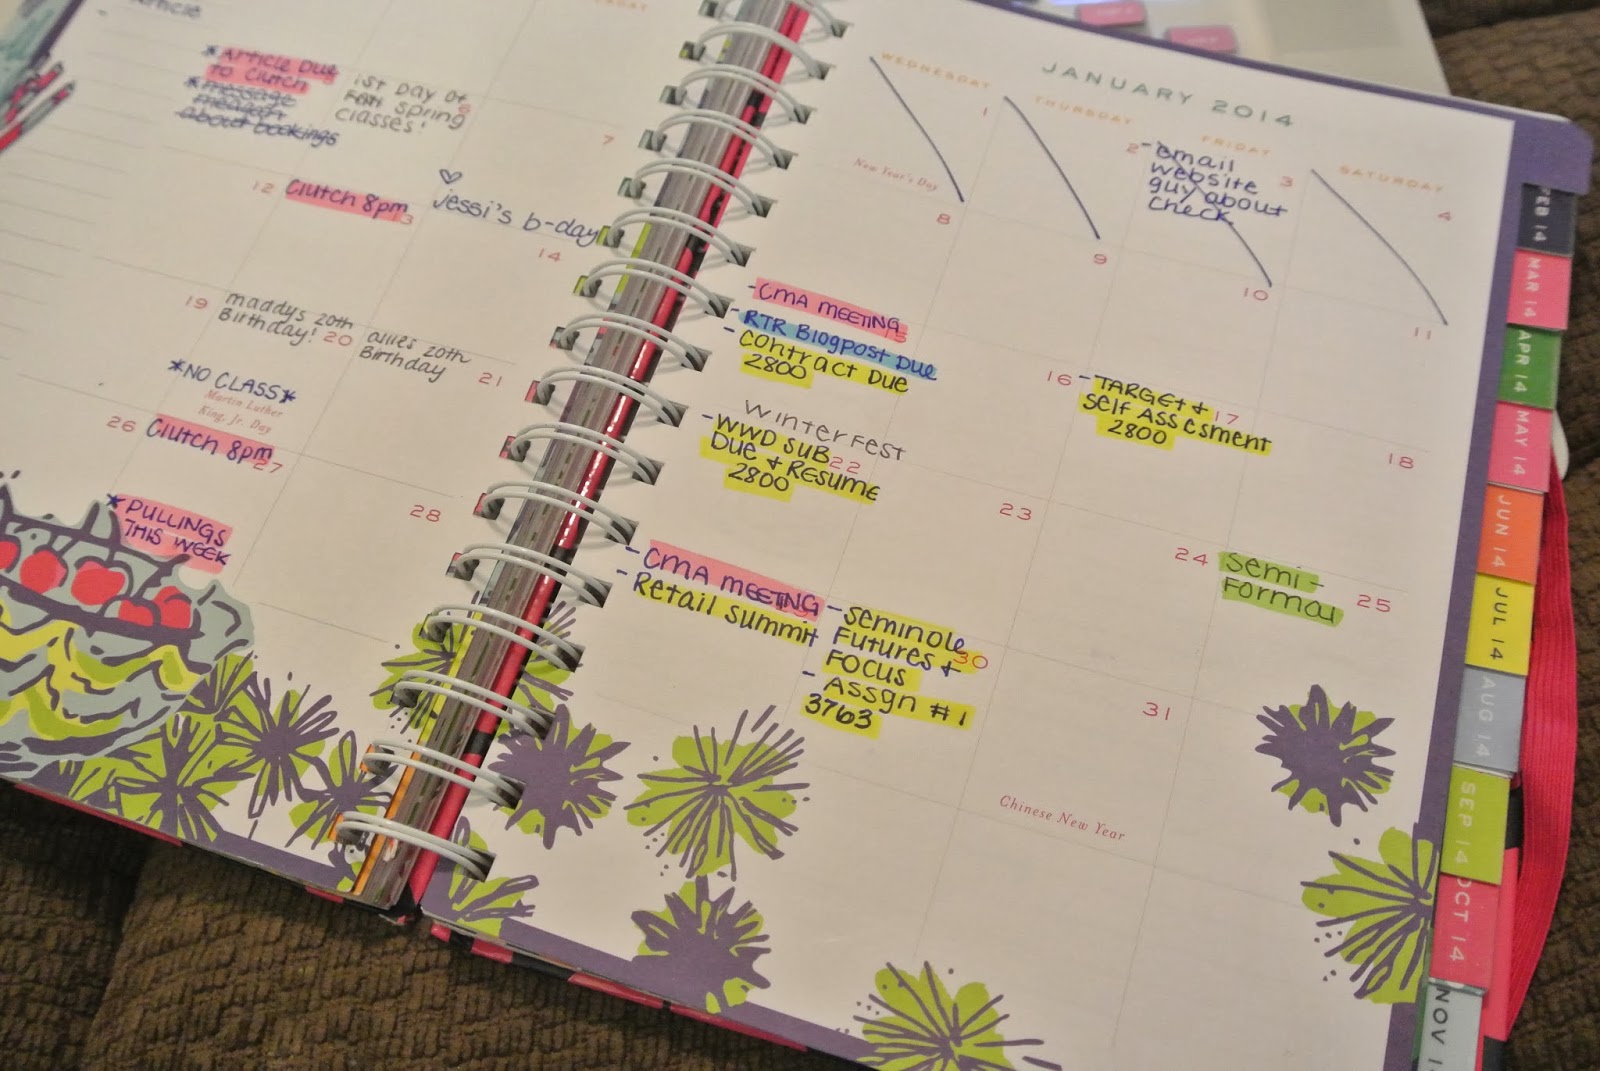 Article
*Article Due
to Clutch
*message
about bookings
1st Day of
FSU Spring
classes!
6
7
12
Clutch 8pm
13
jessi's b-day
14
19
maddys 20th
Birthday!
20
allies 20th
Birthday
21
*NO CLASS*
Martin Luther
King, Jr. Day
26
Clutch 8pm
27
*PULLINGS
THIS WEEK
28
JANUARY 2014
WEDNESDAY
THURSDAY
FRIDAY
SATURDAY
1
New Year's Day
2
-email
website
guy about
check
3
4
8
9
10
11
-CMA MEETING
15
-RTR Blogpost Due
-contract Due
2800
16
-TARGET +
Self Assesment
2800
17
18
Winterfest
-WWD SUB
Due + RESUME
2800
22
23
24
Semi-
Formal
25
-CMA MEETING
-Retail Summit
-Seminole
Futures +
FOCUS
-Assgn #1
3763
30
31
Chinese New Year
FEB 14
MAR 14
APR 14
MAY 14
JUN 14
JUL 14
AUG 14
SEP 14
OCT 14
NOV 1